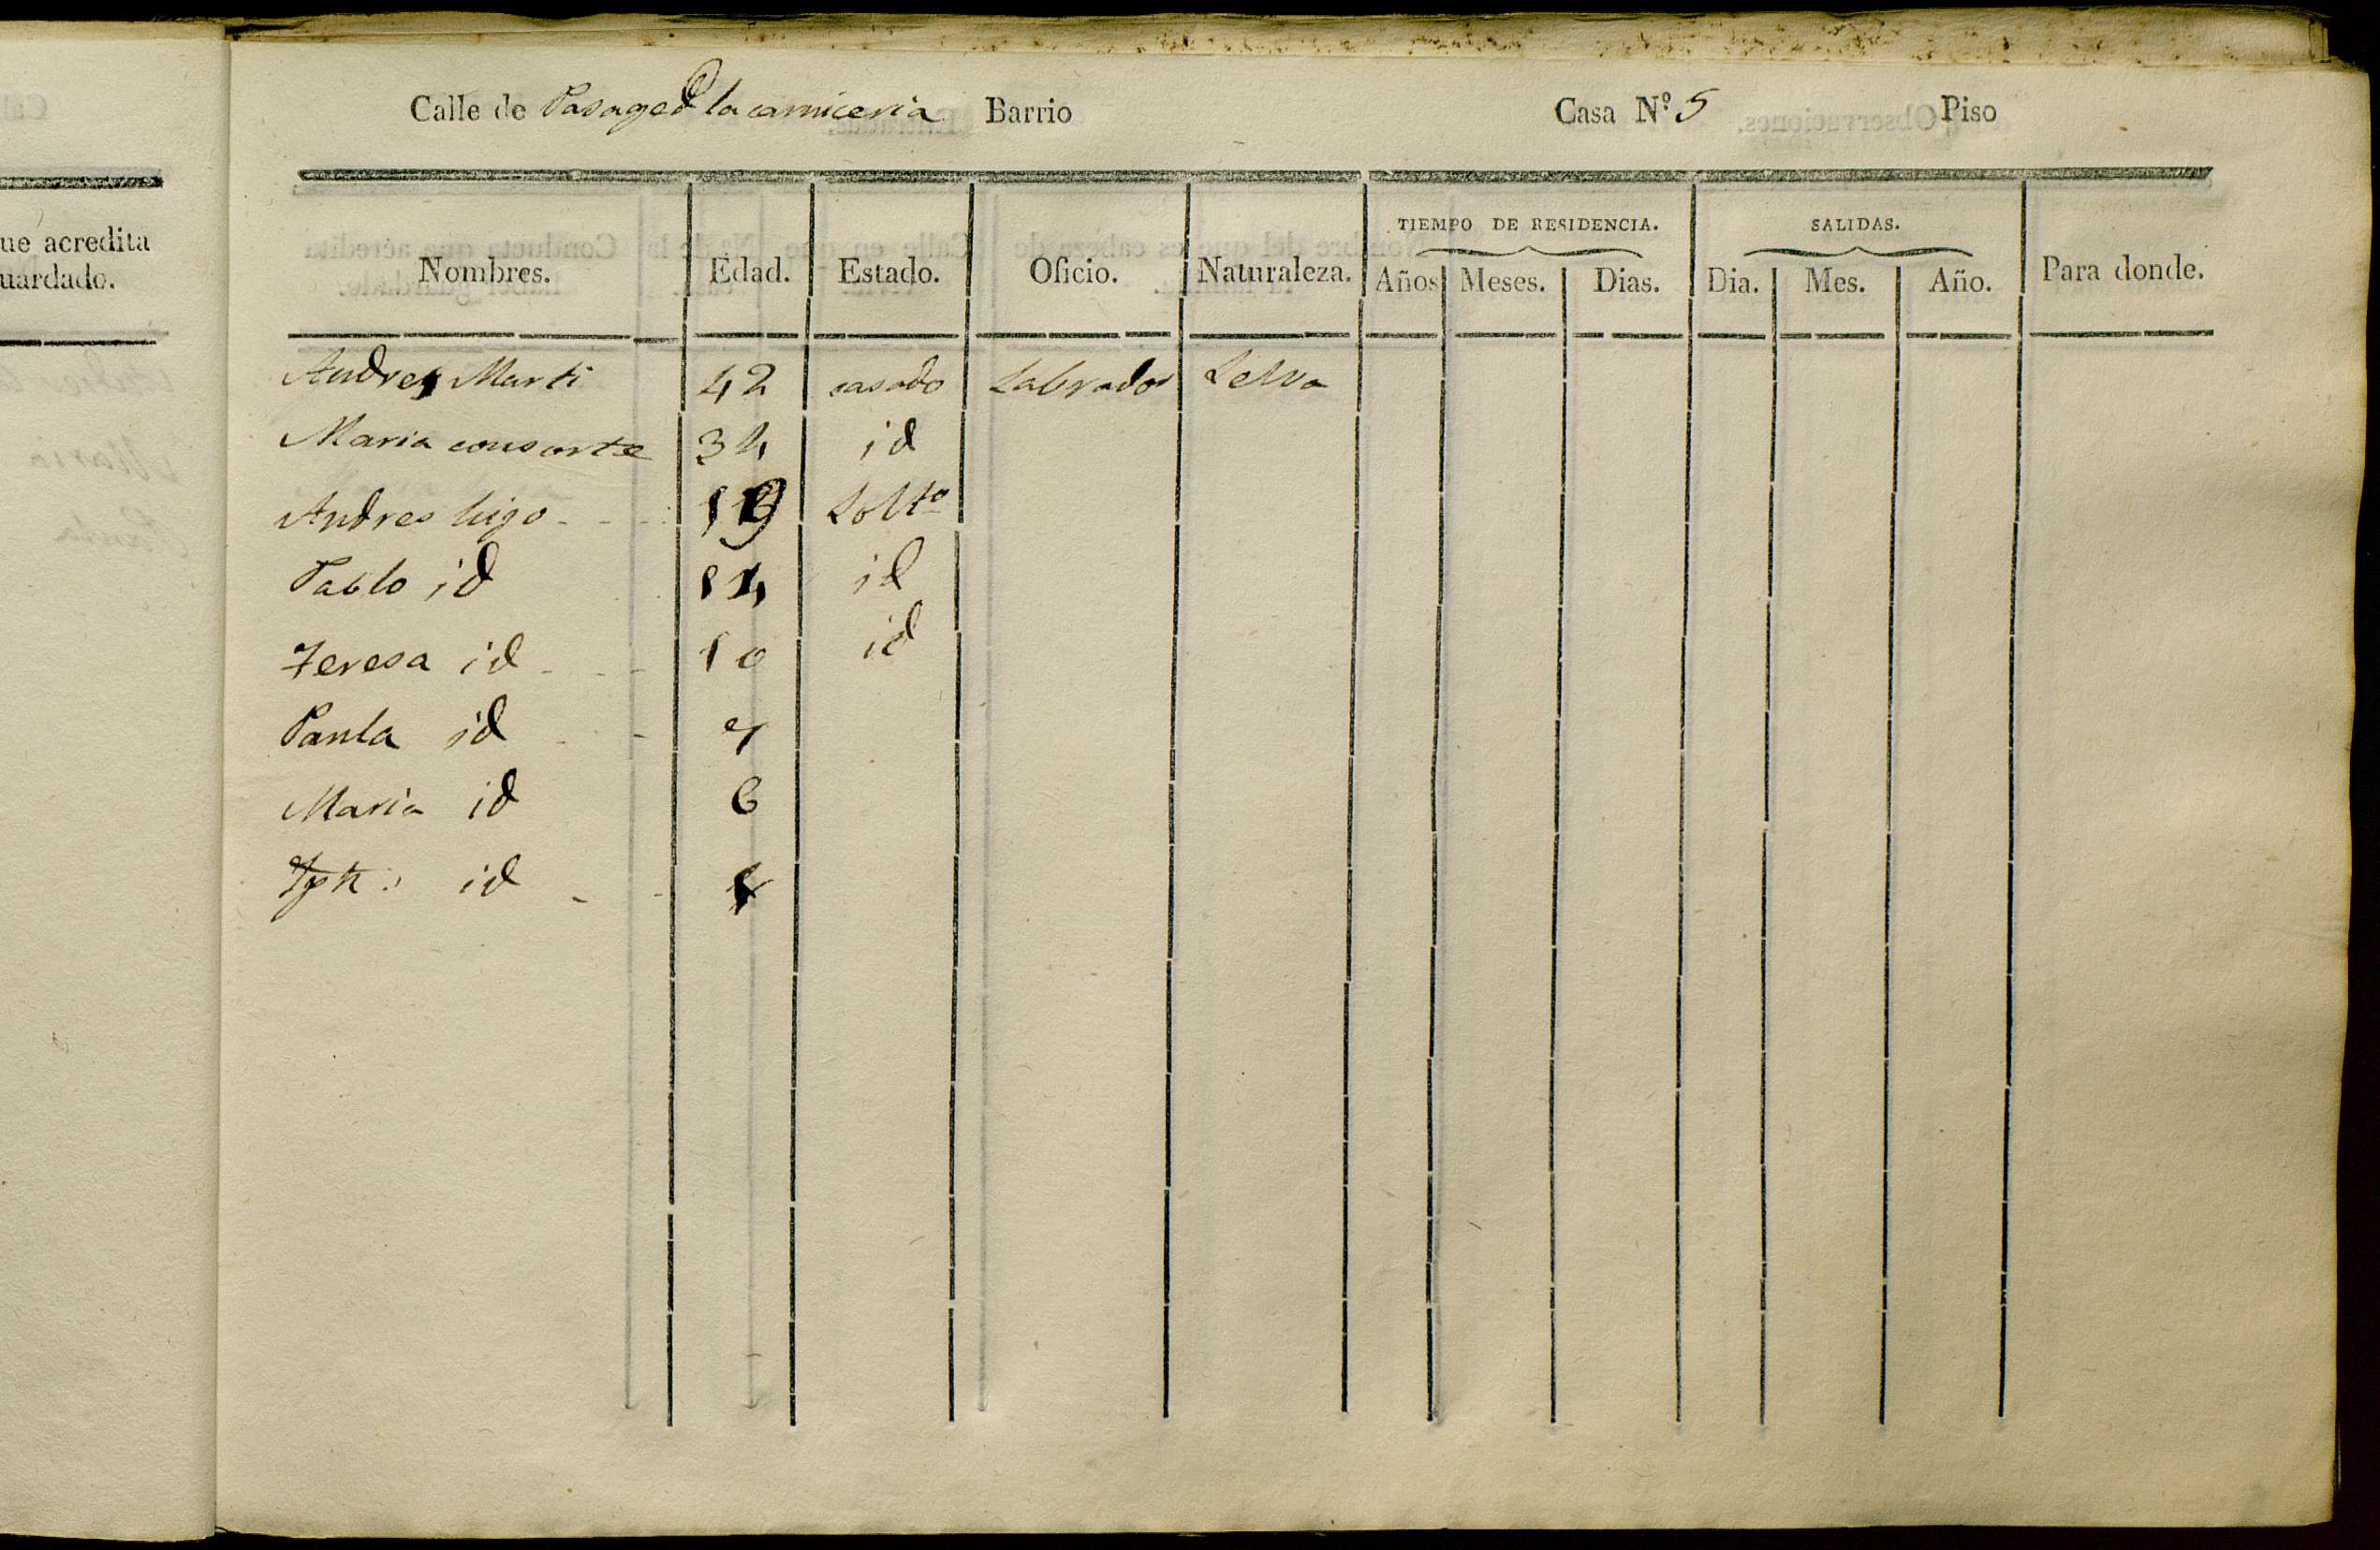 ue acredita
uardado.
Calle de Pasage d la carniceria Barrio Casa Nº 5 Piso
TIEMPO DE RESIDENCIA. SALIDAS.
Nombres. Edad. Estado. Oficio. Naturaleza. Años Meses. Dias. Dia. Mes. Año. Para donde.
Andres Marti 42 casado Labrador Selva
Maria consorte 34 id
Andres hijo 19 Solto
Pablo id 14 id
Teresa id 10 id
Paula id 7
Maria id 6
id